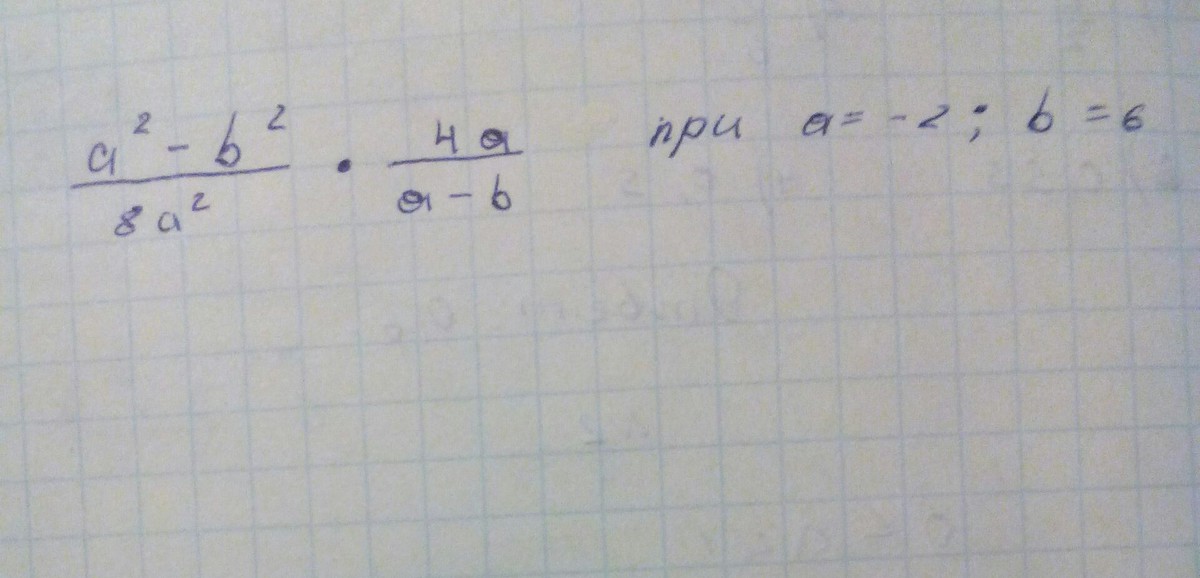 a² - b² / 8a² · 4a / a - b при a = -2; b = 6